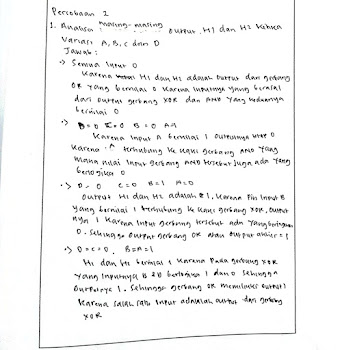 Percobaan 2
1. Analisa masing-masing output, H1 dan H2 ketika
Variasi A, B, C dan D
Jawab:
-> Semua input 0
Karena H1 dan H2 adalah output dari gerbang
OR yang bernilai 0 karena inputnya yang berasal
dari output gerbang XOR dan AND yang keduanya
bernilai 0
-> D=0 C=0 B=0 A=1
Karena input A bernilai 1 outputnya 0
Karena A terhubung ke kaki gerbang AND yang
mana nilai input gerbang AND tersebut juga ada yang
berlogika 0
-> D=0 C=0 B=1 A=0
Output H1 dan H2 adalah 1, karena pin input B
yang bernilai 1 terhubung ke kaki gerbang XOR, output
nya 1 karena input gerbang tersebut ada yang
0. Sehingga output gerbang OR akan output akhir = 1
-> D=C=0, B=A=1
H1 dan H2 bernilai 1 karena pada gerbang XOR
yang inputnya B & D berlogika 1 dan 0 sehingga
outputnya 1. Sehingga gerbang OR output 1
karena salah satu input adalah output dari gerbang
XOR